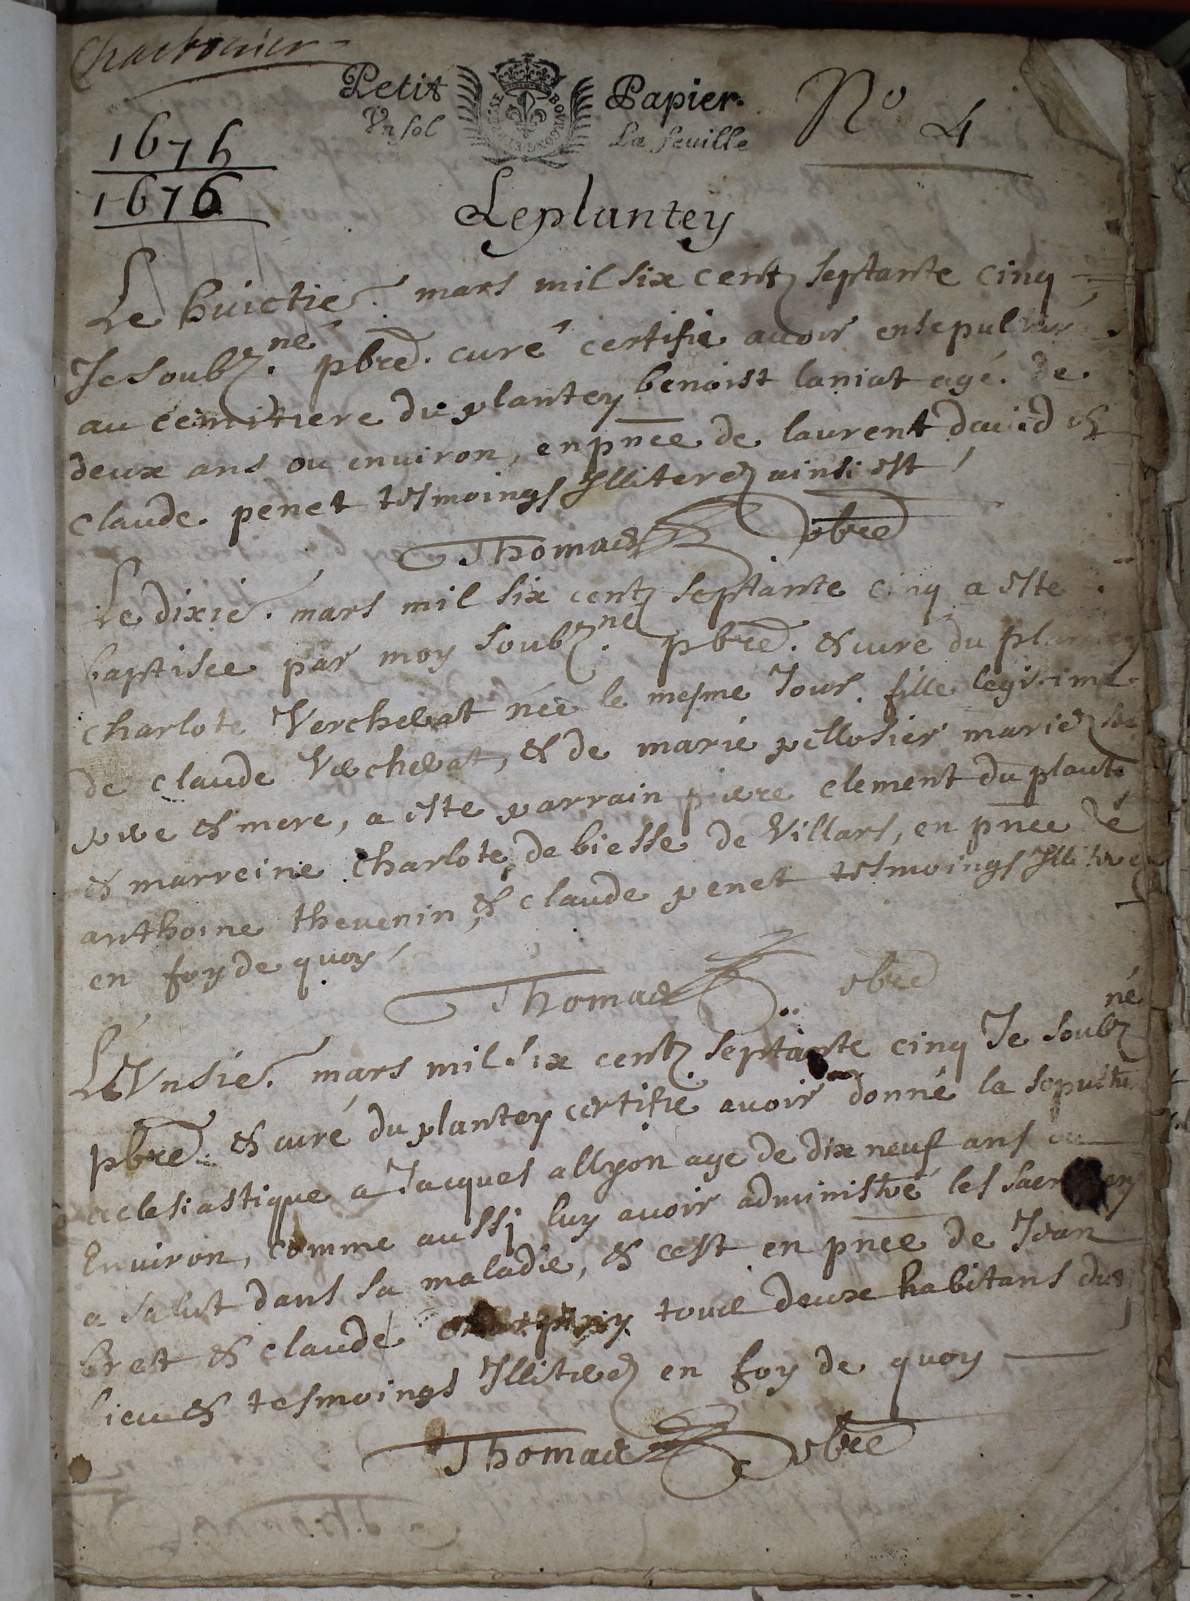 Charbonier
Petit Papier.
Un sol La feuille
BRESSE BOURGOGNE ET
No 4
1675
1676
Leplantey
Le huictie. mars mil six centz septante cinq
Je soubz.né pbre. curé certifie avoir ensepulturé
au cemitiere du plantey benoist laniat agé. de
deux ans ou environ, en pnce de laurent david &
claude penet tesmoings Illiterez ainsi est
Thomas pbre
Le dixie. mars mil six centz septante cinq a este
baptisee par moy soubz.né pbre. & curé du
charlote Verchevat née le mesme Jour. fille legitime
de claude Vercherat, & de marie pellosier mariez
pere & mere, a este parrain pierre clement du plante
& marreine charlote de biesse de Villars, en pnce de
anthoine thevenin, & claude penet tesmoings Illiterez
en foy de quoy
Thomas pbre
Le Unsie. mars mil six centz septante cinq Je soubzné
pbre. & curé du plantey certifie avoir donné la sepultu
ecclesiastique a Jacques allyon age de dix neuf ans ou
Environ, comme aussi luy avoir administré les
a salut dans sa maladie, & cest en pnce de Jean
bret & claude tous deux habitans du
lieu & tesmoings Illiterez en foy de quoy
Thomas pbre